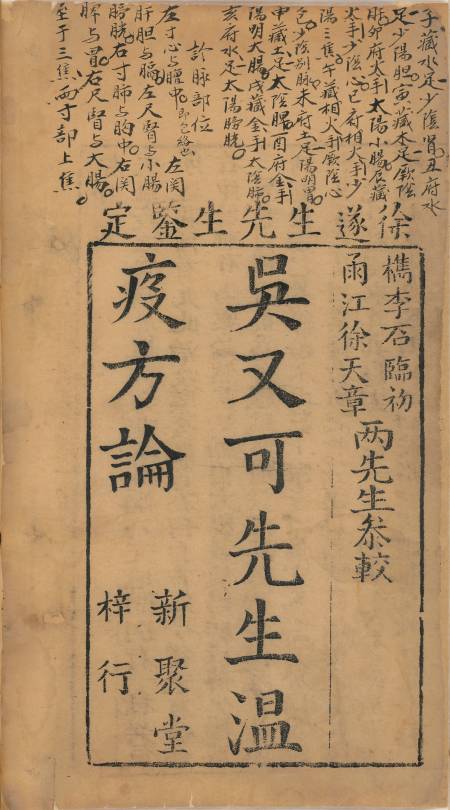 子藏水足少陰腎丑府水
足少陽胆寅藏木足厥陰
肝卯府火手太陽小腸辰藏
火手少陰心巳府相火手少
陽三焦午藏相火手厥陰心
包少陰別脉未府土足陽明胃
申藏土足太陰脾酉府金手
陽明大腸戌藏金手太陰肺
亥府水足太陽膀胱
診脉部位
左寸心与膻中即包絡也 左関
肝胆与膈左尺腎与小腸
膀胱右寸肺与胸中右関
脾与胃右尺腎与大腸
至于三焦兩寸部上焦
徐遂生先生鑒定
檇李石臨初
雨江徐天章
两先生叅較
吳又可先生温
疫方論
新聚堂
梓行